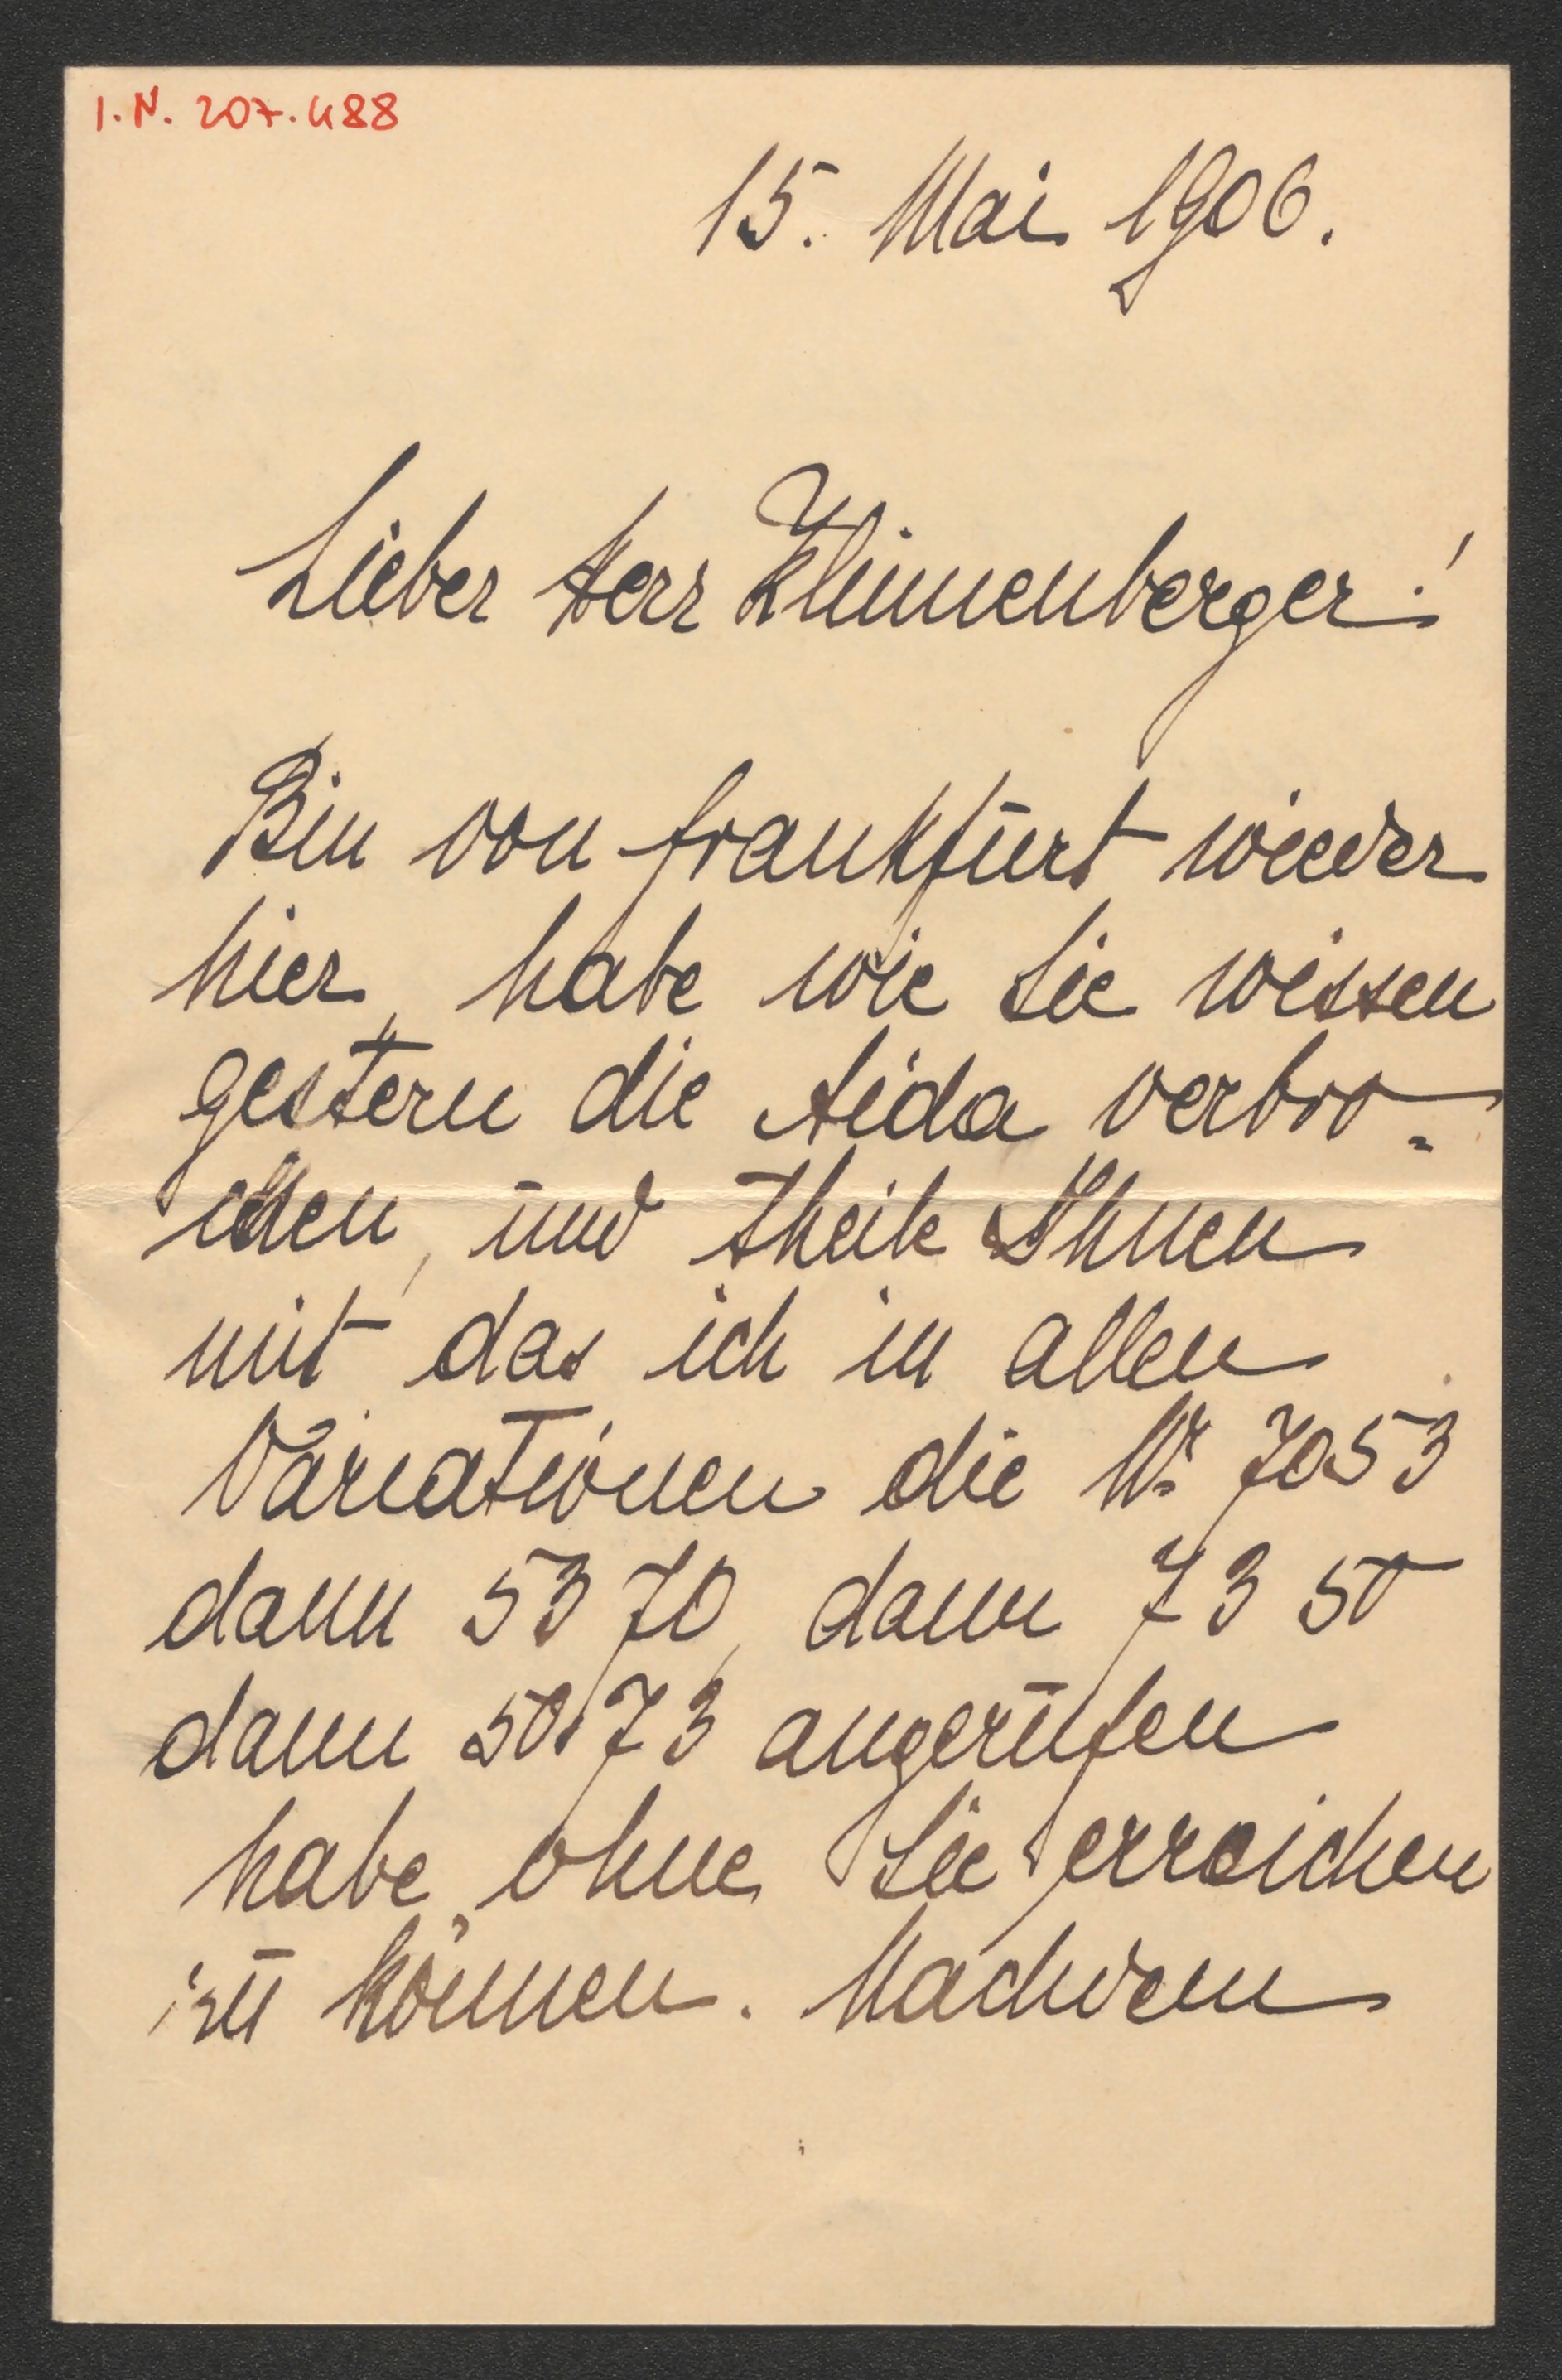 I.N. 207.488
15. Mai 1906.
Lieber Herr Klimenberger!
Bin von Frankfurt wieder
hier, habe wie Sie wissen
gestern die Aida verbro=
chen, und theile Ihnen
mit das ich in allen
Variationen die Nr 7053
dann 5370, dann 73 50
dann 50 73 angerufen
habe, ohne Sie erreichen
zu können. Nachdem